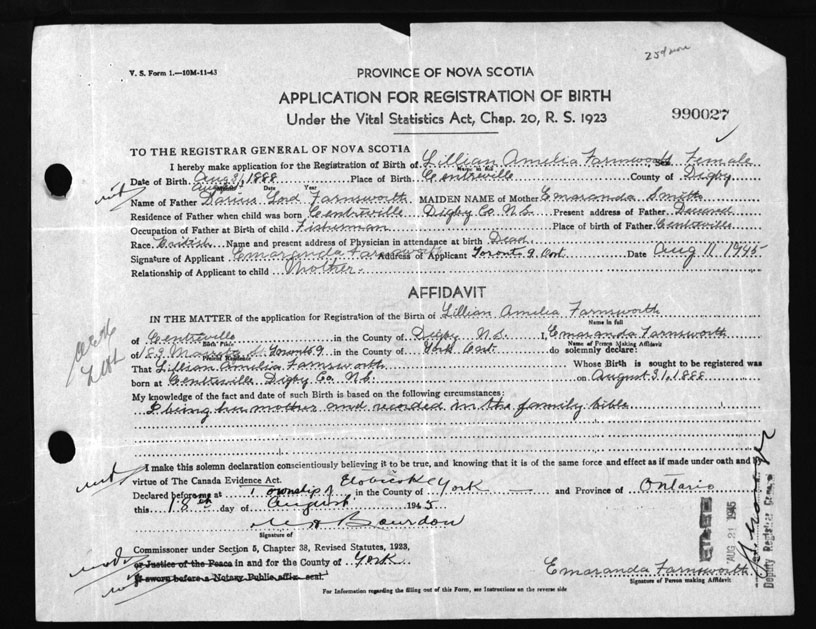 25¢ more
V. S. Form 1.—10M-11-43
PROVINCE OF NOVA SCOTIA
APPLICATION FOR REGISTRATION OF BIRTH
990027
Under the Vital Statistics Act, Chap. 20, R. S. 1923
TO THE REGISTRAR GENERAL OF NOVA SCOTIA
I hereby make application for the Registration of Birth of Lillian Amelia Farnsworth Sex Female
Name in full
Date of Birth Aug 31, 1888 Place of Birth Centreville County of Digby
August
Month Date Year
Name of Father Darius Lord Farnsworth MAIDEN NAME of Mother Emaranda Smith
Residence of Father when child was born Centreville Digby Co N.S. Present address of Father Deceased
Occupation of Father at Birth of child Fisherman Place of birth of Father Centreville
Race British Name and present address of Physician in attendance at birth Dead
Signature of Applicant Emaranda Farnsworth Address of Applicant Toronto 9. Ont Date Aug 11 1945
Relationship of Applicant to child Mother
AFFIDAVIT
IN THE MATTER of the application for Registration of the Birth of Lillian Amelia Farnsworth
Name in full
of Centreville in the County of Digby N.S. I, Emaranda Farnsworth
Birth Place Name of Person Making Affidavit
of Toronto 9 in the County of York Ont. do solemnly declare:
That Lillian Amelia Farnsworth Whose Birth is sought to be registered was
born at Centreville Digby Co. N.S. on August 31, 1888
My knowledge of the fact and date of such Birth is based on the following circumstances:
I being her mother and recorded in the family bible
I make this solemn declaration conscientiously believing it to be true, and knowing that it is of the same force and effect as if made under oath and by
virtue of The Canada Evidence Act.
Declared before me at Township of Etobicoke in the County of York and Province of Ontario
this 18th day of August 1945
Bourdon
Signature of
Commissioner under Section 5, Chapter 38, Revised Statutes, 1923,
or Justice of the Peace in and for the County of York
If sworn before a Notary Public affix seal
Emaranda Farnsworth
Signature of Person making Affidavit
For Information regarding the filling out of this Form, see Instructions on the reverse side
AUG 21 1945
Deputy Registrar General